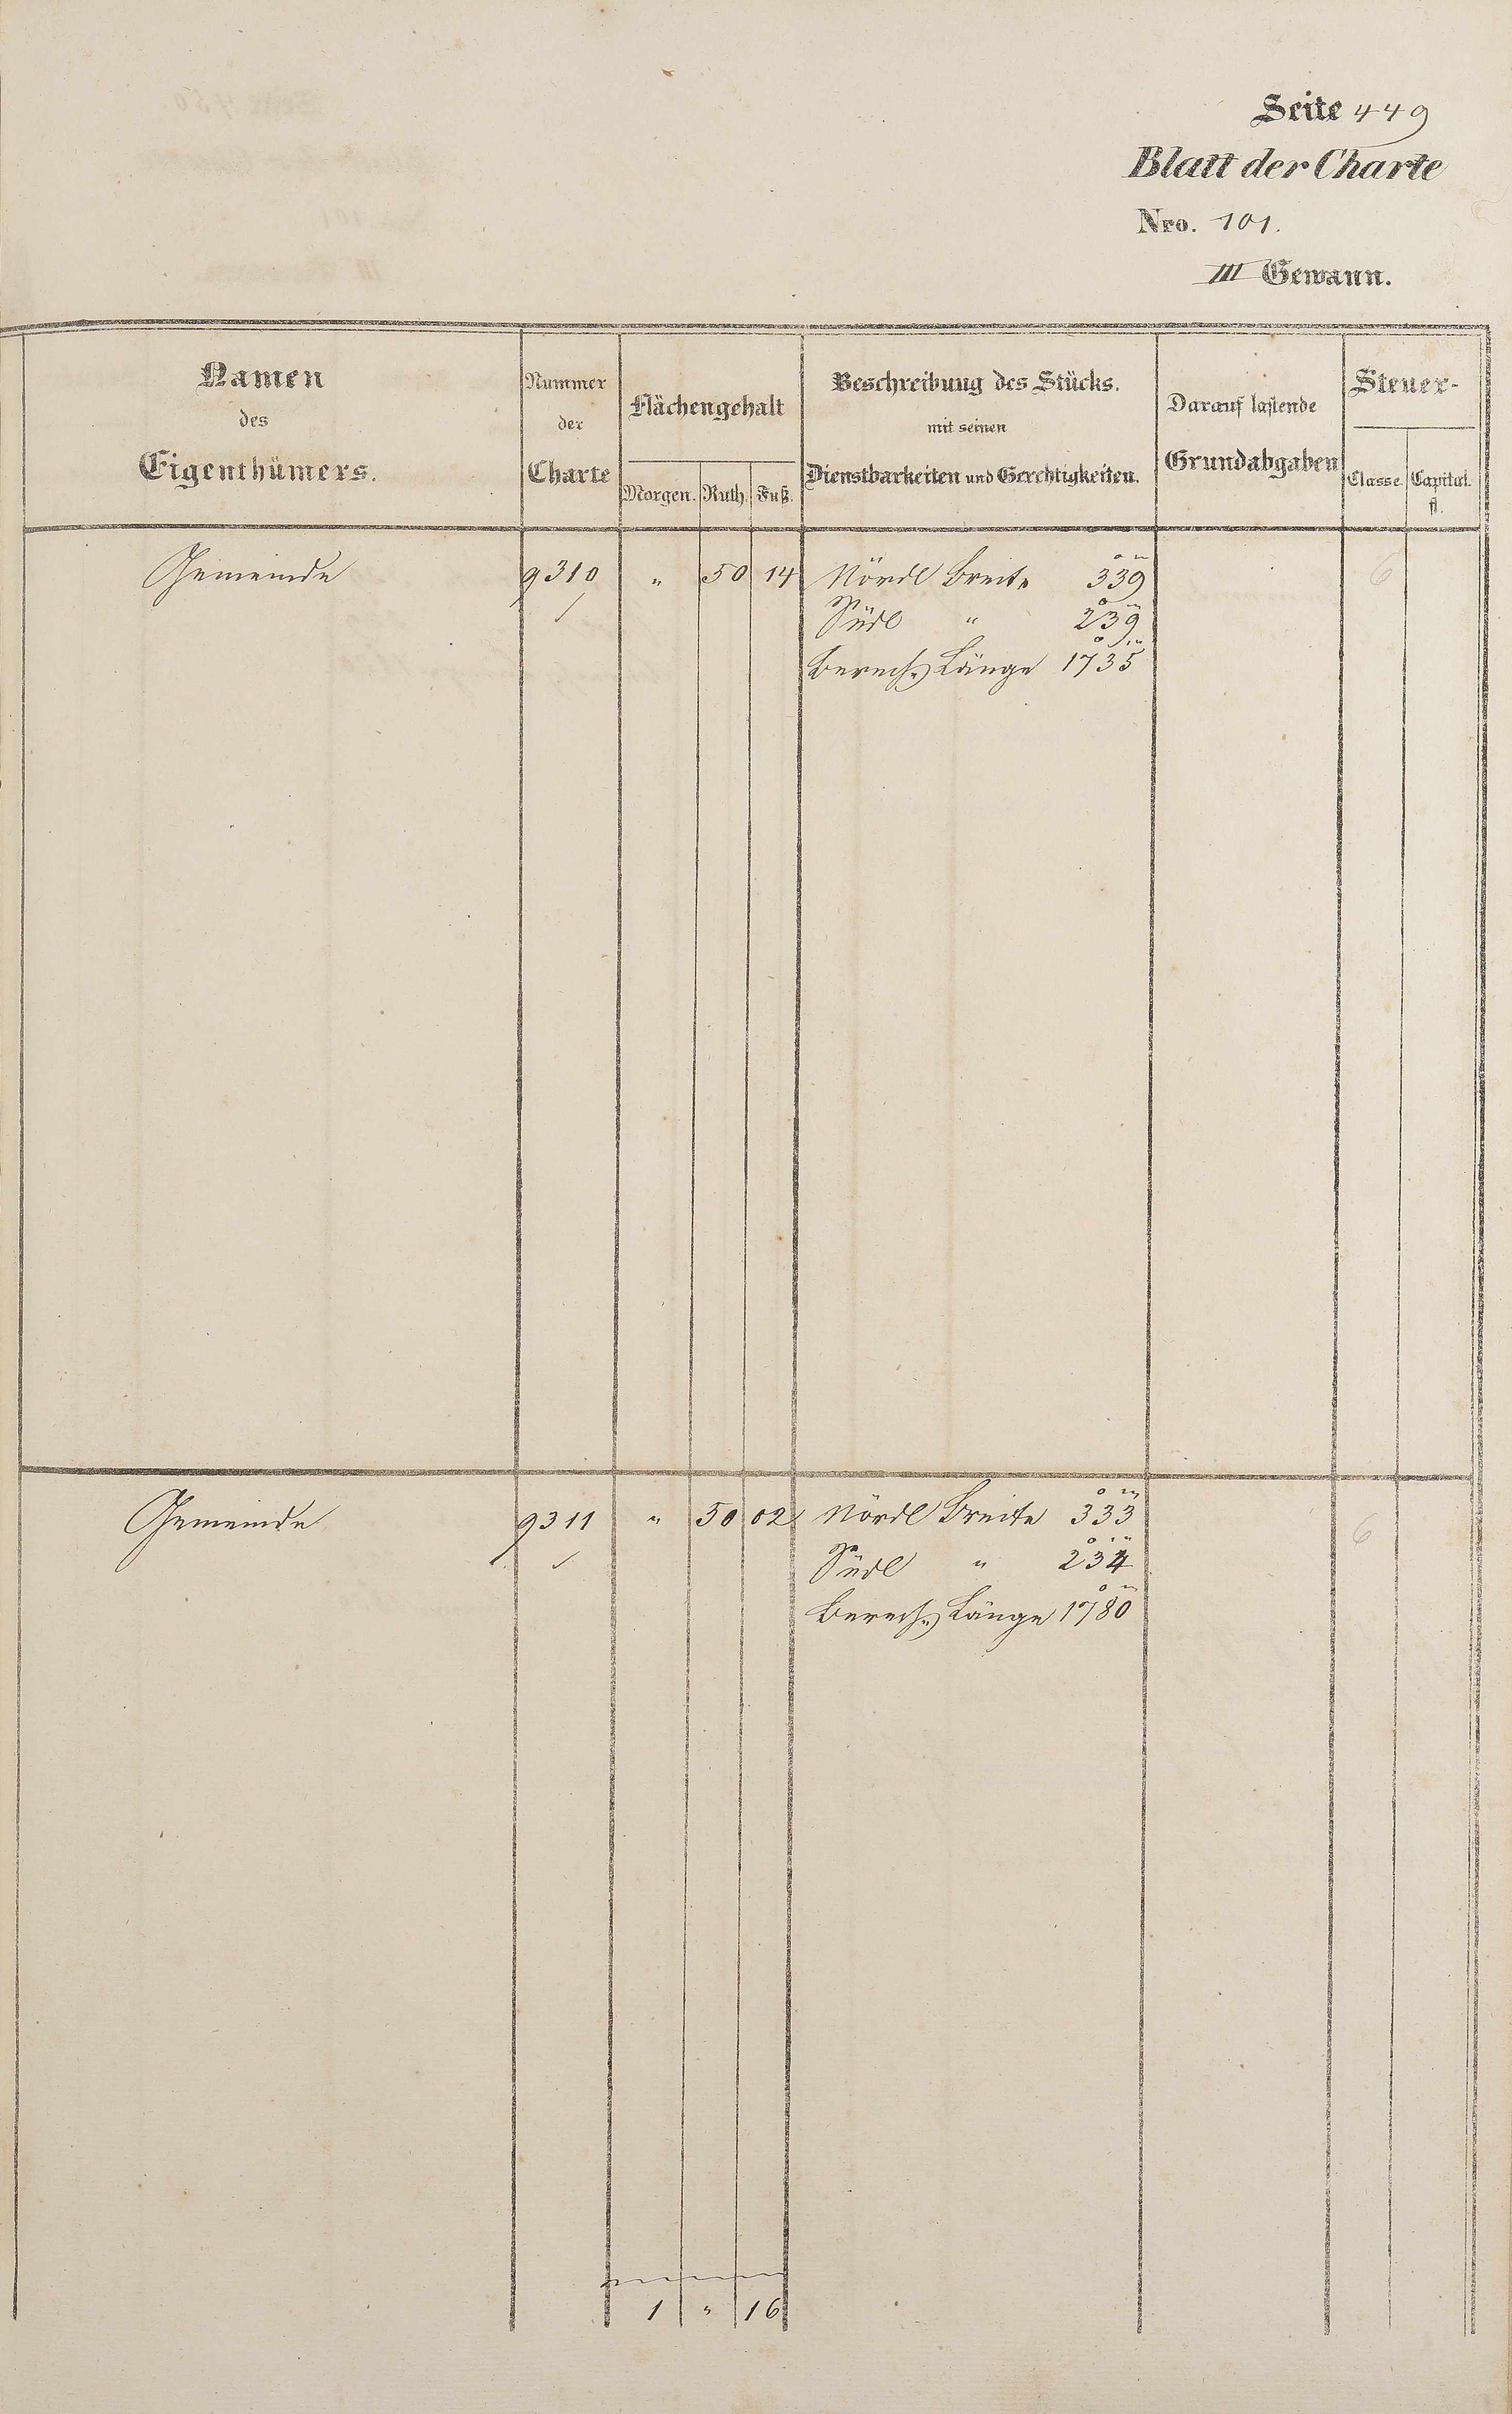 Seite 449
Blatt der Charte
Nro. 101.
III Gewann.
Namen des Eigenthümers.
Nummer der Charte
Flächengehalt
Morgen. Ruth. Fuß.
Beschreibung des Stücks. mit seinen Dienstbarkeiten und Gerechtigkeiten.
Darauf lastende Grundabgaben
Steuer-
Classe. Capital. fl.
Gemeinde 9310 " 50 14 Nördl Breite 339 6
Südl " 239
Berech. Länge 1735
Gemeinde 9311 " 50 02 Nördl Breite 333 6
Südl " 234
Berech. Länge 1780
1 " 16